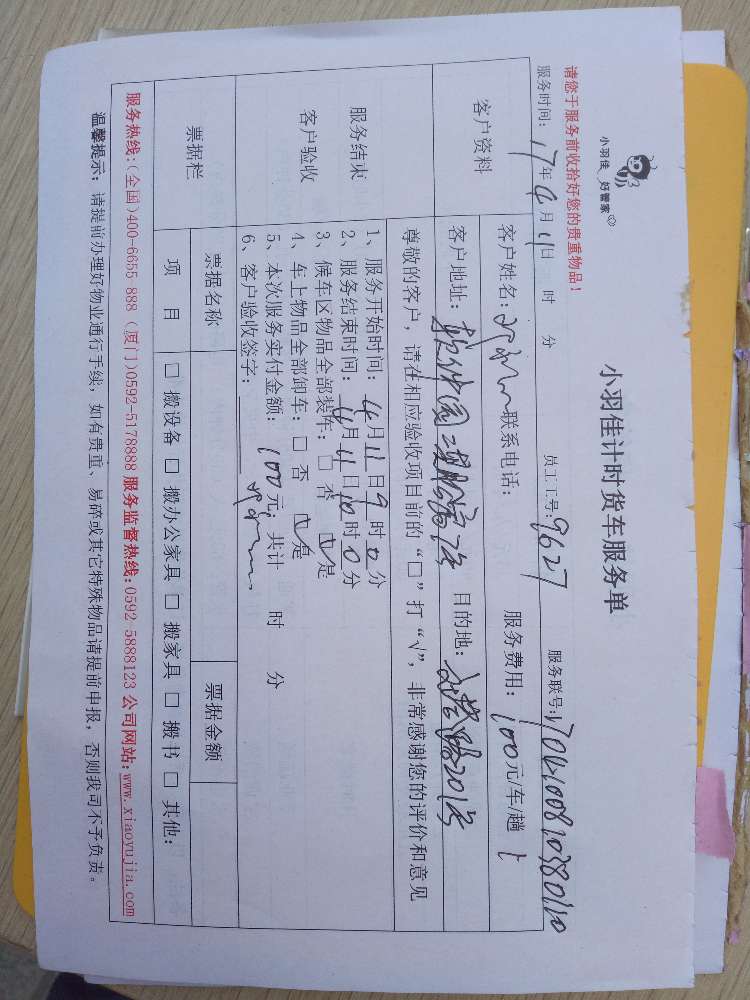 小羽佳 好管家
小羽佳计时货车服务单
请您于服务前收拾好您的贵重物品！
服务时间：17年4月11日 时 分 员工工号：9627 服务联号：
客户资料
客户姓名： 联系电话： 服务费用：100元/车/趟
客户地址：软件园二期 目的地： 201号
尊敬的客户，请在相应验收项目前的“□”打“√”，非常感谢您的评价和意见
服务结束
客户验收
1、服务开始时间：4月11日9时0分
2、服务结束时间：4月11日10时0分
3、候车区物品全部装车：□ 否 ☑是
4、车上物品全部卸车：□ 否 ☑是
5、本次服务实付金额：100元；共计 时 分
6、客户验收签字：
票据栏 票据名称 票据金额
项 目 □ 搬设备 □ 搬办公家具 □ 搬家具 □ 搬书 □ 其他：
服务热线：(全国)400-6655 888 (厦门)0592-5178888 服务监督热线：0592-5888123 公司网站：www.xiaoyujia.com
温馨提示：请提前办理好物业通行手续，如有贵重、易碎或其它特殊物品请提前申报，否则我司不予负责。